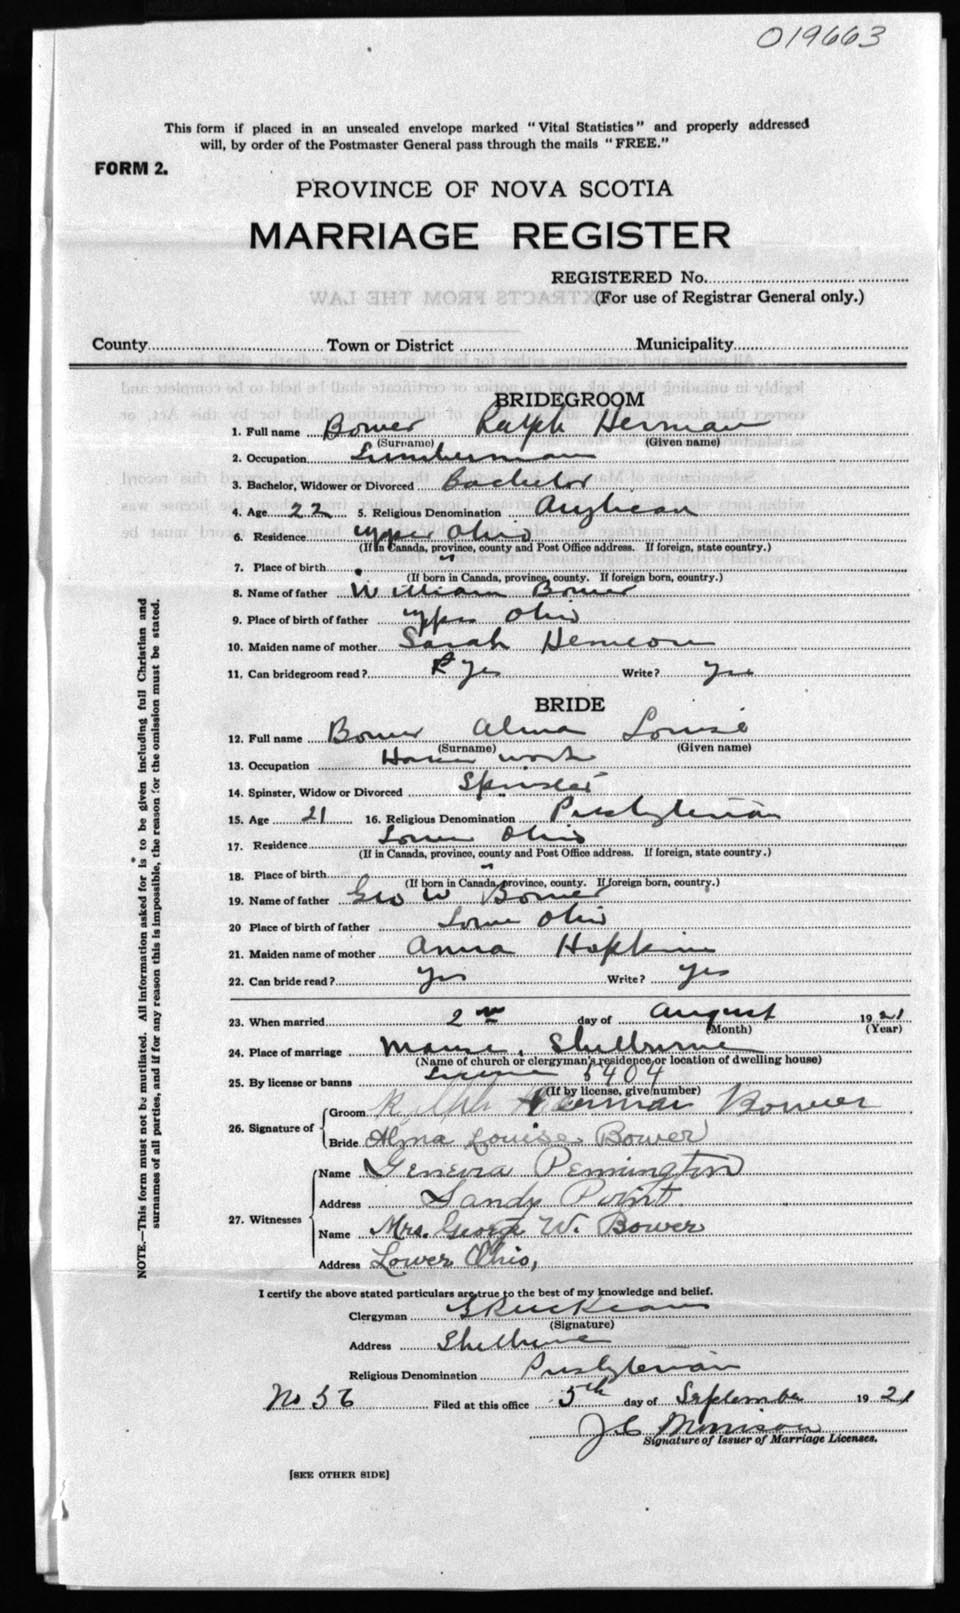 019663
This form if placed in an unsealed envelope marked "Vital Statistics" and properly addressed
will, by order of the Postmaster General pass through the mails "FREE."
FORM 2.
PROVINCE OF NOVA SCOTIA
MARRIAGE REGISTER
REGISTERED No.
(For use of Registrar General only.)
County Town or District Municipality
BRIDEGROOM
1. Full name Bower Ralph Herman
(Surname) (Given name)
2. Occupation Lumberman
3. Bachelor, Widower or Divorced Bachelor
4. Age 22 5. Religious Denomination Anglican
6. Residence Upper Ohio
(If in Canada, province, county and Post Office address. If foreign, state country.)
7. Place of birth "
(If born in Canada, province, county. If foreign born, country.)
8. Name of father William Bower
9. Place of birth of father Upper Ohio
10. Maiden name of mother Sarah Hemeon
11. Can bridegroom read? Yes Write? Yes
BRIDE
12. Full name Bower Alma Louise
(Surname) (Given name)
13. Occupation House work
14. Spinster, Widow or Divorced Spinster
15. Age 21 16. Religious Denomination Presbyterian
17. Residence Lower Ohio
(If in Canada, province, county and Post Office address. If foreign, state country.)
18. Place of birth "
(If born in Canada, province, county. If foreign born, country.)
19. Name of father Geo W Bower
20 Place of birth of father Lower Ohio
21. Maiden name of mother Anna Hopkins
22. Can bride read? Yes Write? Yes
23. When married 2nd day of August 1921
(Month) (Year)
24. Place of marriage Manse, Shelburne
(Name of church or clergyman's residence, or location of dwelling house)
25. By license or banns License 5404
(If by license, give number)
26. Signature of Groom Ralph Herman Bower
Bride Alma Louise Bower
27. Witnesses Name Geneva Pennington
Address Sandy Point.
Name Mrs. George W. Bower
Address Lower Ohio,
I certify the above stated particulars are true to the best of my knowledge and belief.
Clergyman
(Signature)
Address Shelburne
Religious Denomination Presbyterian
No 56 Filed at this office 5th day of September 1921
J C Morrison
Signature of Issuer of Marriage Licenses.
[SEE OTHER SIDE]
NOTE.—This form must not be mutilated. All information asked for is to be given including full Christian and
surnames of all parties, and if for any reason this is impossible, the reason for the omission must be stated.